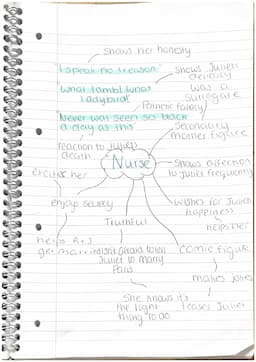 shows her honesty
"I speak no treason"
shows Juliet's
delicacy
"what lamb! what
ladybird!"
was a
surrogate
Pathetic fallacy
"Never was seen so black
a day as this"
Secondary
mother figure
reaction to Juliet's
death
Nurse
excites her
shows affection
to Juliet frequently
enjoys secrecy
wishes for Juliet
happiness
helps her
Truthful
helps R+J
get married
Juliet to marry
Paris
comic figure
makes jokes
She knows it's
the right
thing to do
teases Juliet